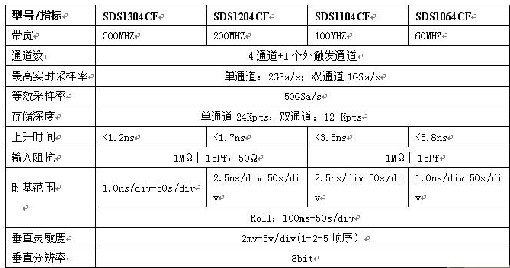 型号/指标 SDS1304CF SDS1204CF SDS1104CF SDS1064CF
带宽 300MHZ 200MHZ 100MHZ 60MHZ
通道数 4通道+1个外触发通道
最高实时采样率 单通道：2GSa/s；双通道1GSa/s
等效采样率 50GSa/s
存储深度 单通道24Kpts；双通道：12 Kpts
上升时间 <1.2ns <1.7ns <3.5ns <5.8ns
输入阻抗 1MΩ 50Ω 1MΩ
时基范围 1.0ns/div-50s/div 2.5ns/div-50s/div 2.5ns/div-50s/div
Roll：100ms-50s/div
垂直灵敏度 2mv-5v/div(1-2-5顺序)
垂直分辨率 8bit